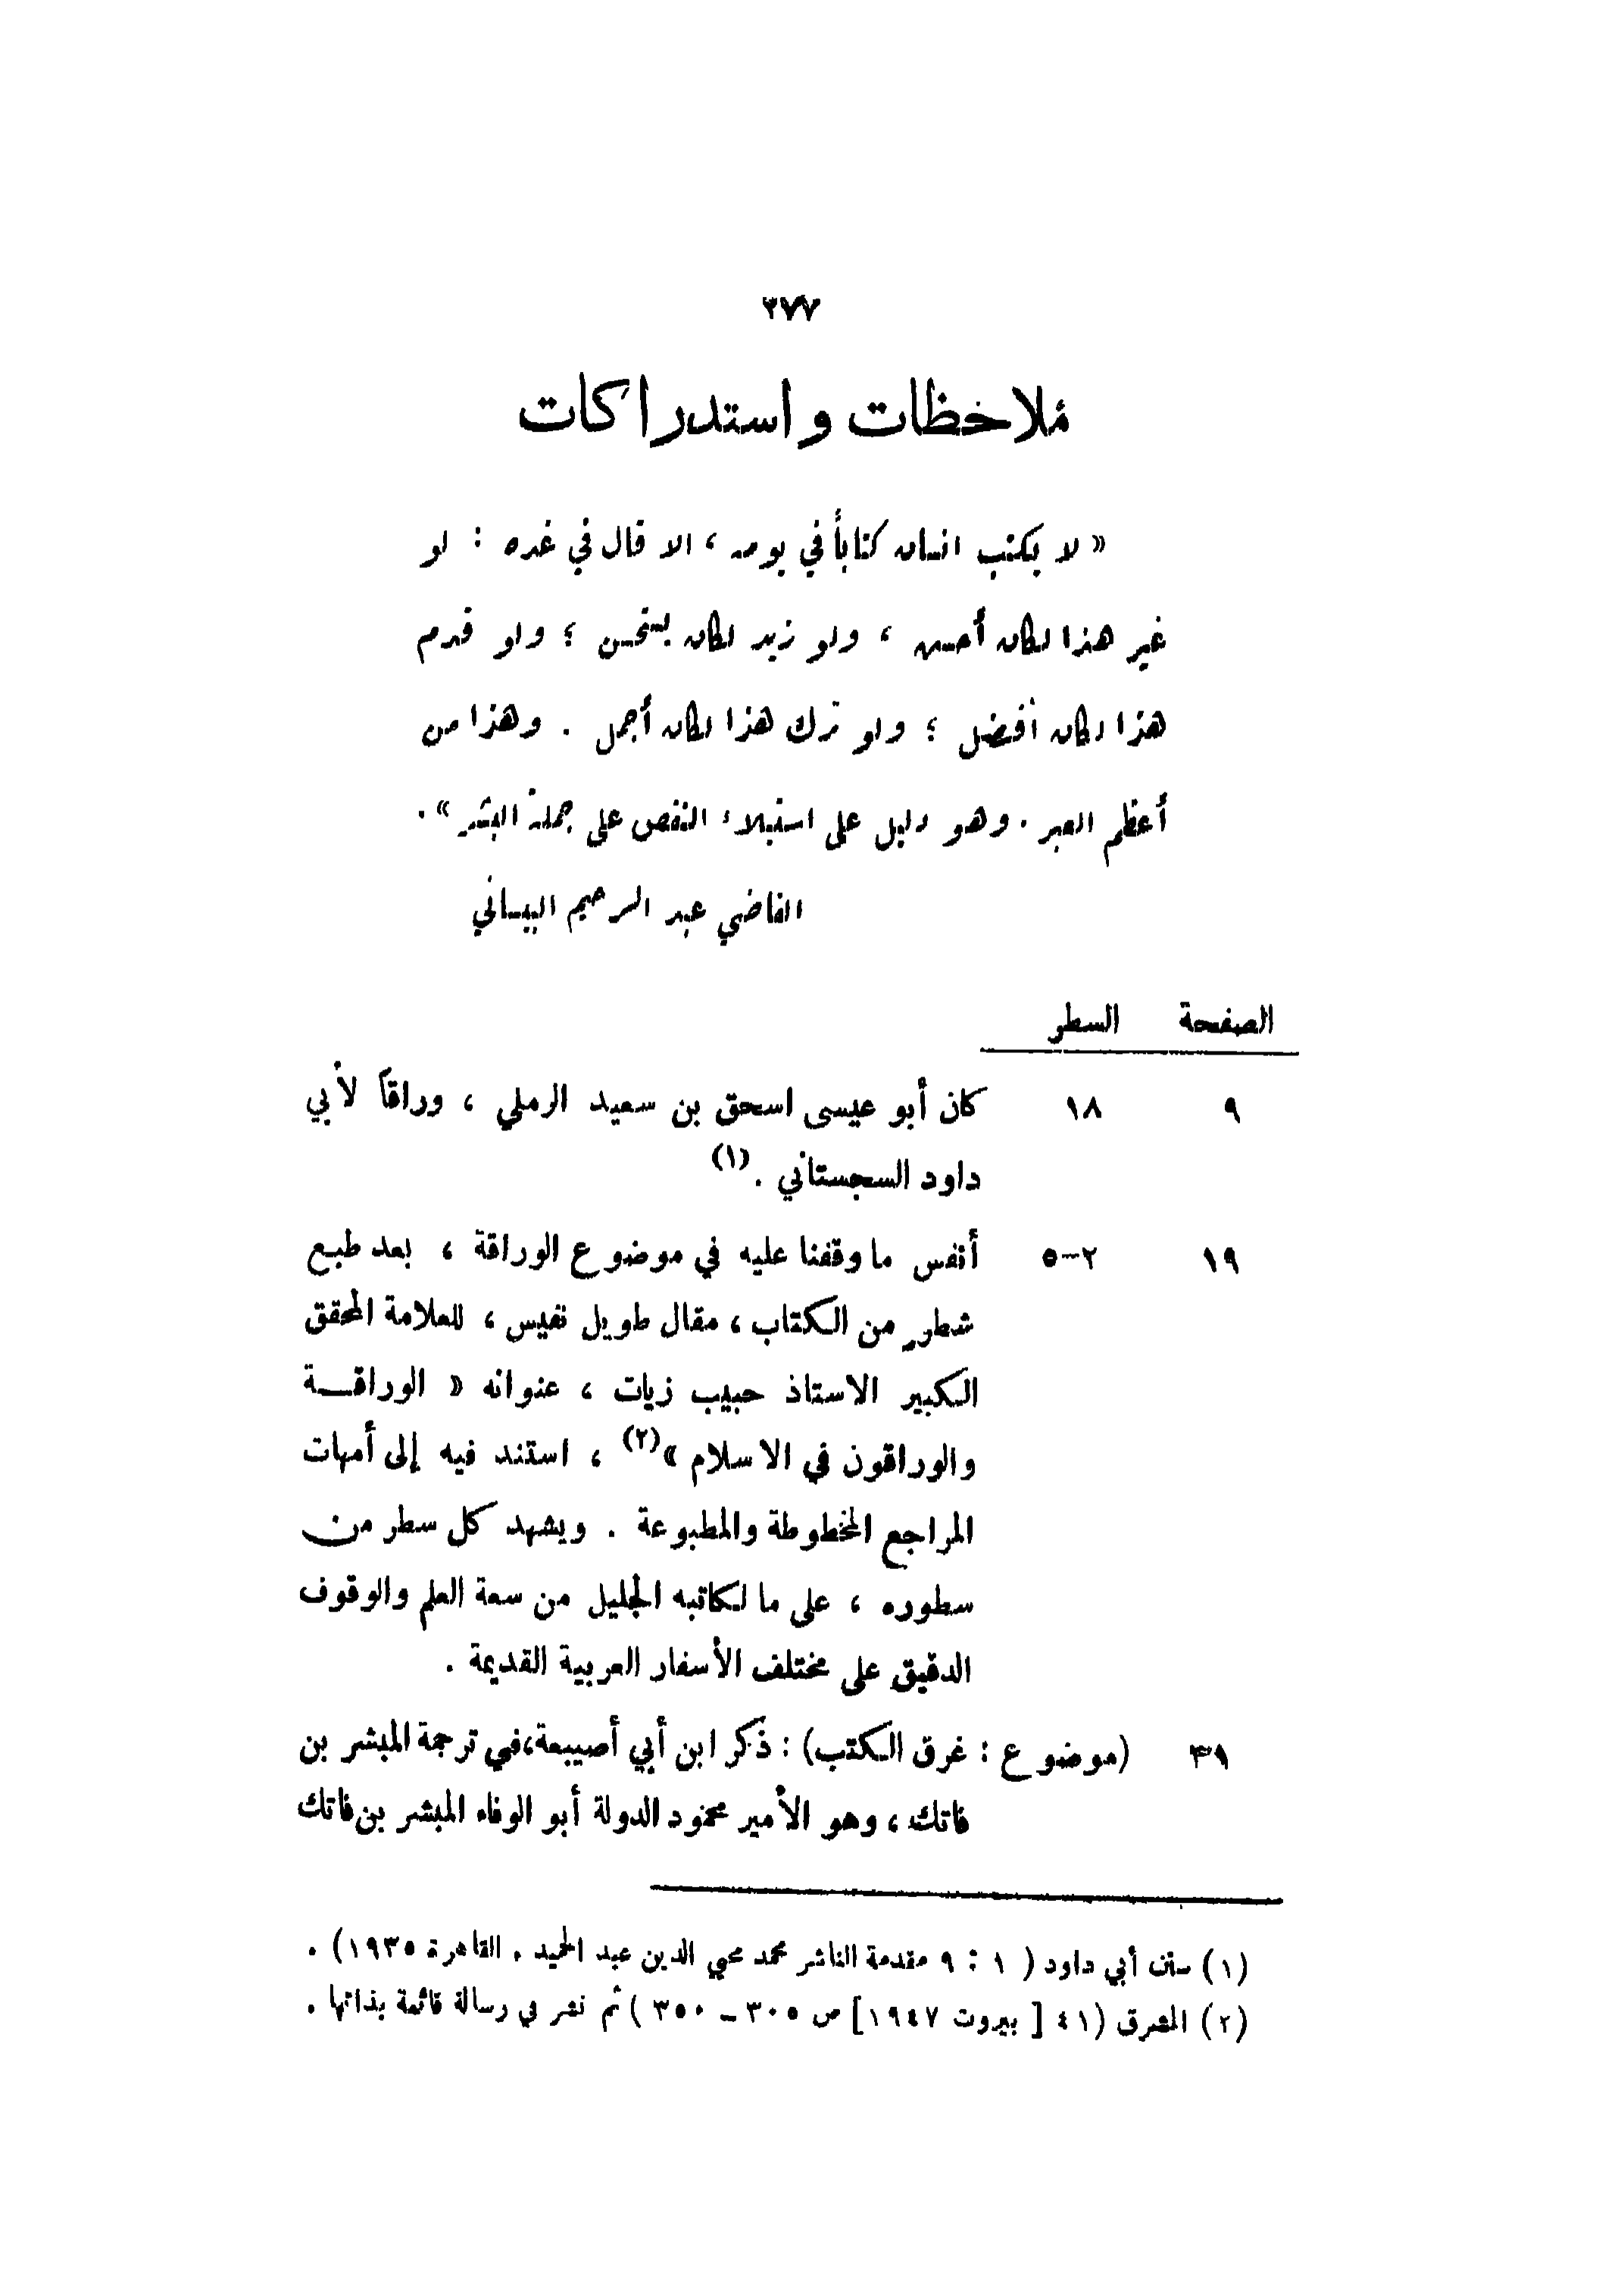 ٢٧٧
ملاحظات واستدراكات
« لا يكتب انسان كتاباً في يومه ، الا قال في غده : لو
غير هذا لكان أحسن ، ولو زيد لكان يستحسن ؛ ولو قدم
هذا لكان أفضل ؛ ولو ترك هذا لكان أجمل . وهذا من
أعظم العبر . وهو دليل على استيلاء النقص على جملة البشر » .
القاضي عبد الرحيم البيساني
الصفحة السطر
٩ ١٨ كان أبو عيسى اسحق بن سعيد الرملي ، وراقاً لأبي
داود السجستاني . (١)
١٩ ٢–٥ أنفس ما وقفنا عليه في موضوع الوراقة ، بعد طبع
شطرٍ من الكتاب ، مقال طويل نفيس ، للعلامة المحقق
الكبير الاستاذ حبيب زيات ، عنوانه « الوراقة
والوراقون في الاسلام » (٢) ، استند فيه إلى أمهات
المراجع المخطوطة والمطبوعة . ويشهد كل سطر من
سطوره ، على ما لكاتبه الجليل من سعة العلم والوقوف
الدقيق على مختلف الأسفار العربية القديمة .
٣٩ (موضوع : غرق الكتب) : ذكر ابن أبي أصيبعة، في ترجمة المبشر بن
فاتك ، وهو الأمير محمود الدولة أبو الوفاء المبشر بن فاتك
(١) سنن أبي داود ( ١ : ٩ مقدمة الناشر محمد محيي الدين عبد الحميد . القاهرة ١٩٣٥) .
(٢) المشرق (٤١ [ بيروت ١٩٤٧] ص ٣٠٥ – ٣٥٠ ) ثم نشر في رسالة قائمة بذاتها .